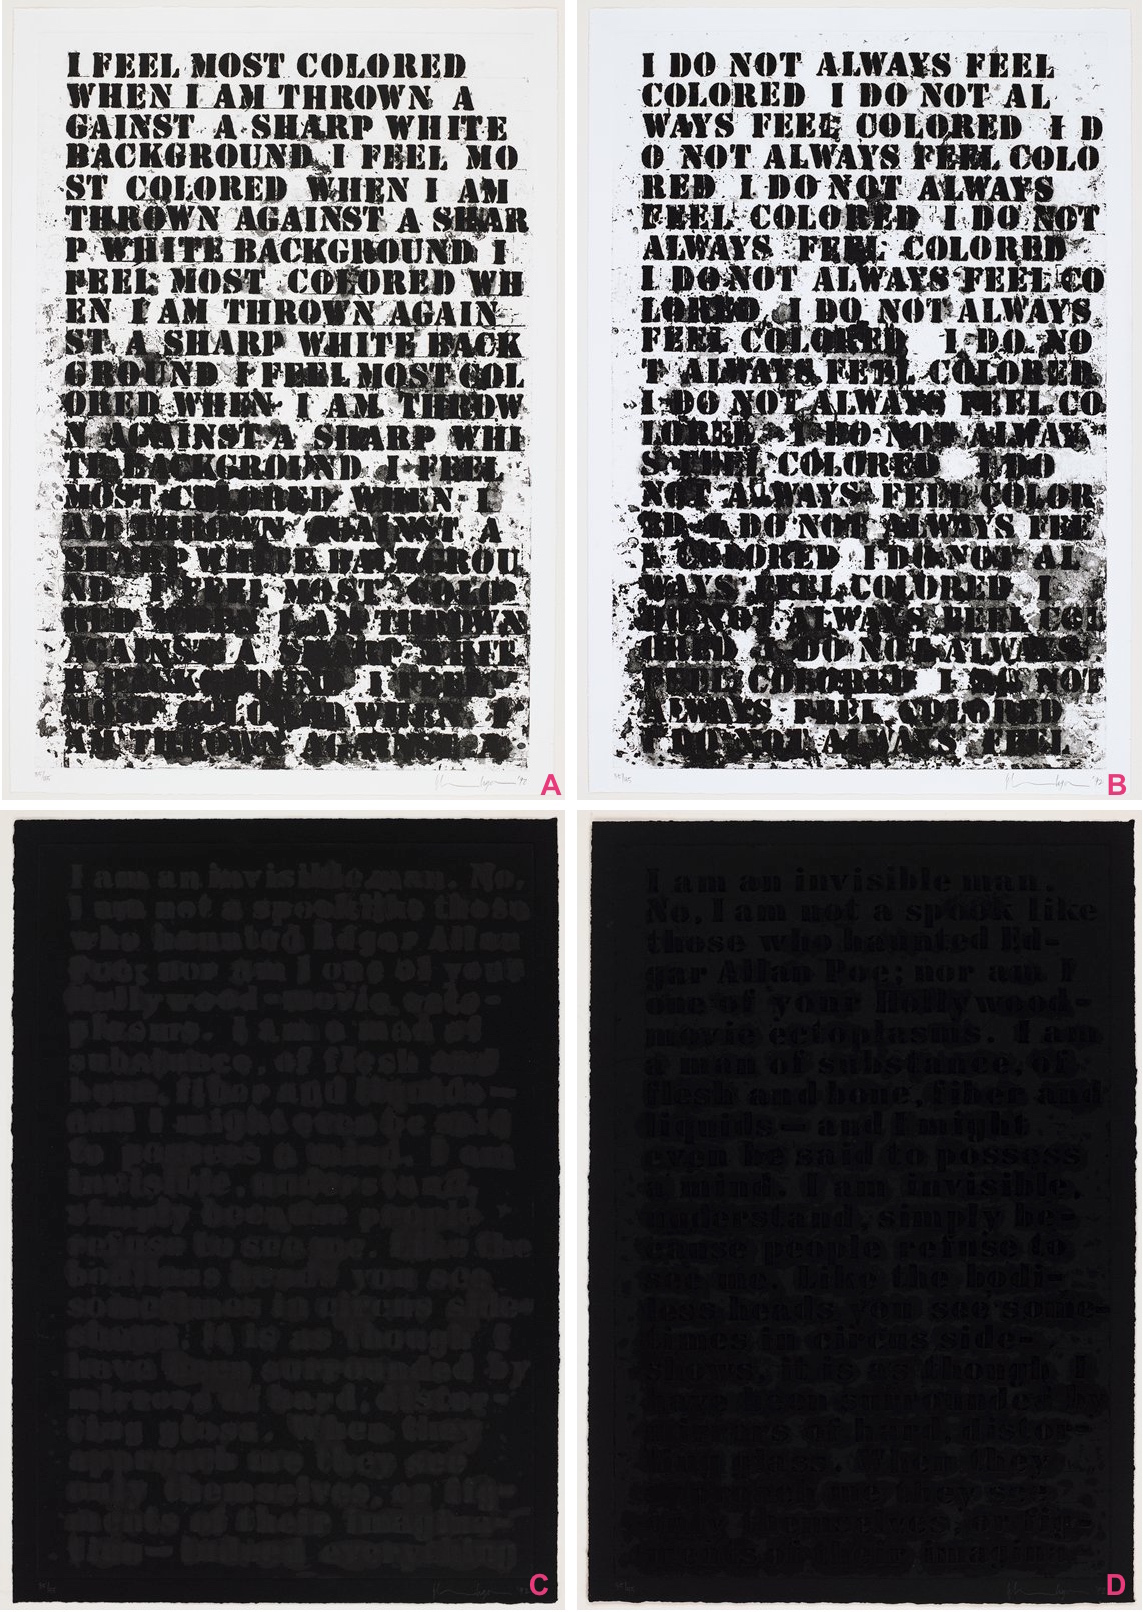 I FEEL MOST COLORED
WHEN I AM THROWN A
GAINST A SHARP WHITE
BACKGROUND I FEEL MO
ST COLORED WHEN I AM
THROWN AGAINST A SHAR
P WHITE BACKGROUND I
FEEL MOST COLORED WH
EN I AM THROWN AGAIN
ST A SHARP WHITE BACK
GROUND I FEEL MOST COL
ORED WHEN I AM THROW
N AGAINST A SHARP WHI
TE BACKGROUND I FEEL
MOST COLORED WHEN I
AM THROWN AGAINST A
SHARP WHITE BACKGROU
ND I FEEL MOST COLO
RED WHEN I AM THROWN
AGAINST A SHARP WHIT
E BACKGROUND I FEEL
MOST COLORED WHEN I
AM THROWN AGAINST A
A
I DO NOT ALWAYS FEEL
COLORED I DO NOT AL
WAYS FEEL COLORED I D
O NOT ALWAYS FEEL COLO
RED I DO NOT ALWAYS
FEEL COLORED I DO NOT
ALWAYS FEEL COLORED
I DO NOT ALWAYS FEEL CO
LORED I DO NOT ALWAYS
FEEL COLORED I DO NO
T ALWAYS FEEL COLORED
I DO NOT ALWAYS FEEL CO
LORED I DO NOT ALWAY
S FEEL COLORED I DO
NOT ALWAYS FEEL COLOR
ED I DO NOT ALWAYS FEE
L COLORED I DO NOT AL
WAYS FEEL COLORED I
DO NOT ALWAYS FEEL COL
ORED I DO NOT ALWAYS
FEEL COLORED I DO NOT
ALWAYS FEEL COLORED
I DO NOT ALWAYS FEEL
B
I am an invisible man. No,
I am not a spook like those
who haunted Edgar Allan
Poe; nor am I one of your
Hollywood-movie ecto-
plasms. I am a man of
substance, of flesh and
bone, fiber and liquids—
and I might even be said
to possess a mind. I am
invisible, understand,
simply because people
refuse to see me. Like the
bodiless heads you see
sometimes in circus side-
shows, it is as though I
have been surrounded by
mirrors of hard, distor-
ting glass. When they
approach me they see
only themselves, or fig-
ments of their imagina-
tion— indeed, everything
C
I am an invisible man.
No, I am not a spook like
those who haunted Ed-
gar Allan Poe; nor am I
one of your Hollywood-
movie ectoplasms. I am
a man of substance, of
flesh and bone, fiber and
liquids—and I might
even be said to possess
a mind. I am invisible,
understand, simply be-
cause people refuse to
see me. Like the bodi-
less heads you see some-
times in circus side-
shows, it is as though I
have been surrounded by
mirrors of hard, distor-
ting glass. When they
approach me they see
only themselves, or fig-
ments of their imagina-
D